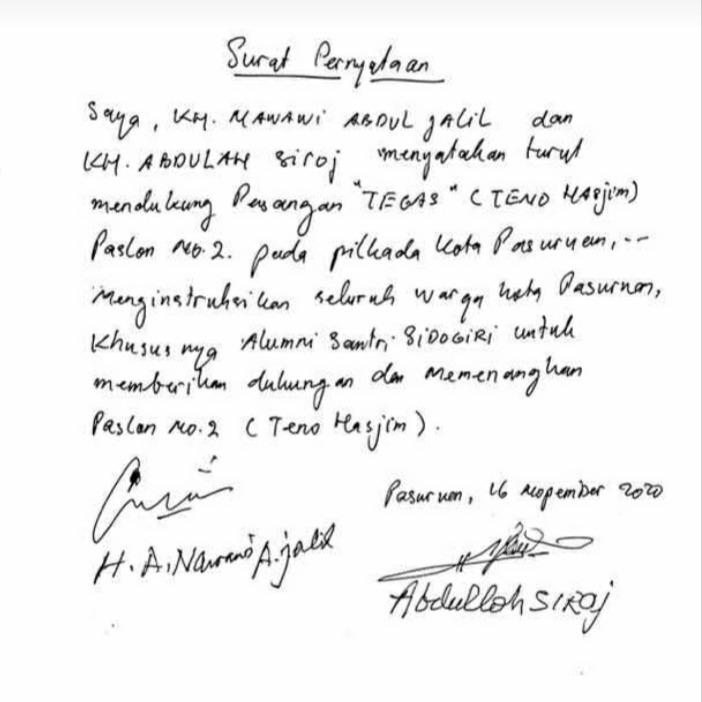 Surat Pernyataan
Saya, KH. MAWAWI ABDUL JALIL dan
KH. ABDULAH Siroj menyatakan turut
mendukung Pasangan "TEGAS" (TENO HASjim)
Paslon No.2. pada pilkada Kota Pasuruan, --
Menginstruksikan seluruh warga kota Pasuruan,
Khususnya Alumni Santri SiDOGIRI untuk
memberikan dukungan dan Memenangkan
Paslon No.2 (Teno Hasjim).
Pasuruan, 16 Nopember 2020
H. A. Nawawi A. jalil
Abdulloh SIROj